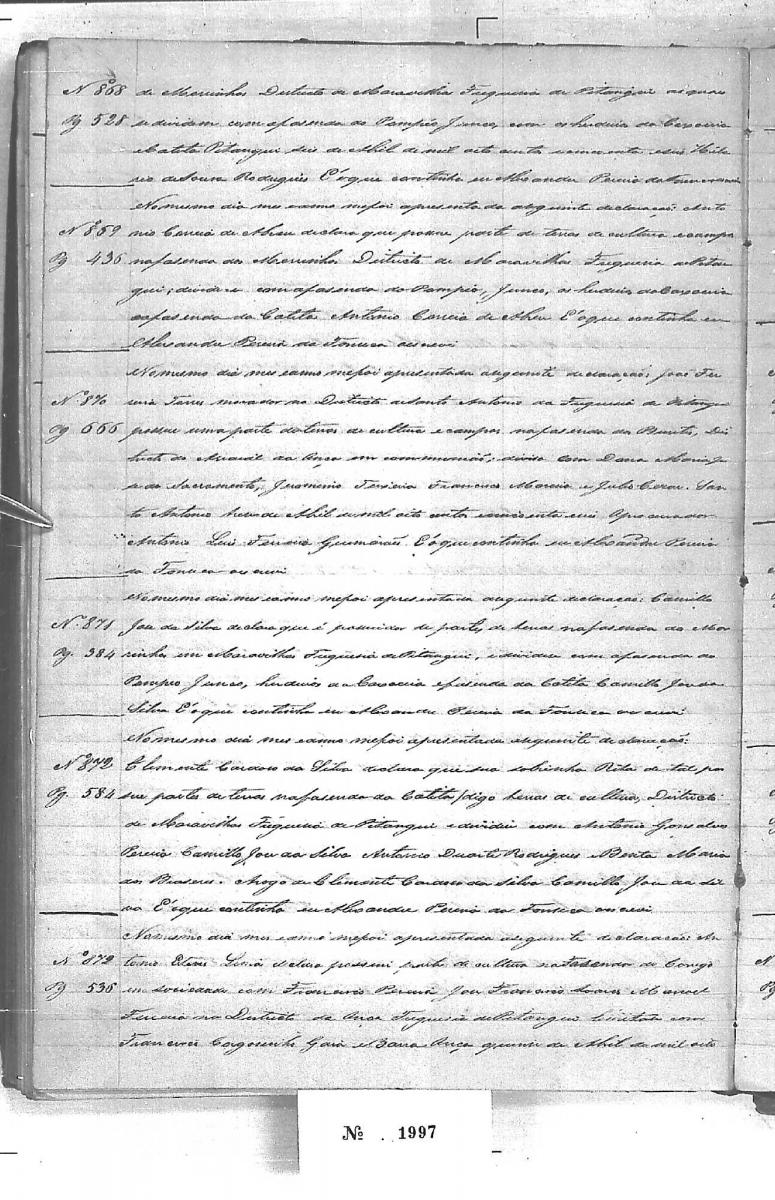 Nº 868 de Morrinhos Districto de Maravilhas Freguesia de Pitangui as quaes
Pg 528 se dividem com afasenda do Pompeo, Junco, com os herdeiros da Caxoeira
e Catita Pitangui seis de Abril de mil oito centos e seis Hila
rio de Sousa Rodrigues E'o que continha eu Alexandre Pereira da Fonseca
No mesmo dia mes e anno me foi apresentada a seguinte declaração: Anto
Nº 869 nio Correia de Abreu declara que possue parte de terras de cultura e campos
Pg 436 na fasenda dos Morrinhos Districto de Maravilhas Freguesia de Pitan
gui; divide com afasenda do Pompeo, Junco, os herdeiros da Caxoeira
e a fasenda da Catita Antonio Correia de Abreu E'o que continha eu
Alexandre Pereira da Fonseca escrevi
No mesmo dia mes e anno me foi apresentada a seguinte declaração: João Fer
Nº 870 reira Torres morador no Districto de Santo Antonio da Freguesia de Pitangui
Pg 666 possue uma parte de terras de cultura e campos na fasenda do Dis
tricto do da Onça em communhão; divide com Dona Maria Jo
do Sacramento, Teixeira Francisco Moreira e Julio Cesar. San
to Antonio de Abril de mil oito centos O procurador
Antonio Luis Ferreira Guimarães E'o que continha eu Alexandre Pereira
da Fonseca escrevi
No mesmo dia mes e anno me foi apresentada a seguinte declaração: Camillo
Nº 871 José da Silva declara que é possuidor de partes de terras na fasenda dos Mor
Pg. 384 rinhos em Maravilhas Freguesia de Pitangui, e divide com afasenda do
Pompeo Junco, herdeiros da Caxoeira e fasenda da Catita Camillo José da
Silva E'o que continha eu Alexandre Pereira da Fonseca escrevi
No mesmo dia mes e anno me foi apresentada a seguinte declaração:
Nº 872 Clemente Cardoso da Silva declara que sua sobrinha Rita de tal pos
Pg. 584 sue partes de terras na fasenda da Catita, digo terras de cultura, Districto
de Maravilhas Freguesia de Pitangui e divide com Antonio Gonsalves
Pereira Camillo José da Silva Antonio Duarte Rodrigues e Benta Maria
dos Prazeres. Arogo de Clemente Cardoso da Silva Camillo José da Sil
va E'o que continha eu Alexandre Pereira da Fonseca escrevi
No mesmo dia mes e anno me foi apresentada a seguinte declaração: An
Nº 872 tonio declara possuir parte de cultura na fasenda do
Pg 536 em sociedade com Francisco Pereira, José Francisco Soares Manoel
Ferreira no Districto da Onça Freguesia de Pitangui com
Francisco e Barra Onça quinze de Abril de mil oito
Nº 1997